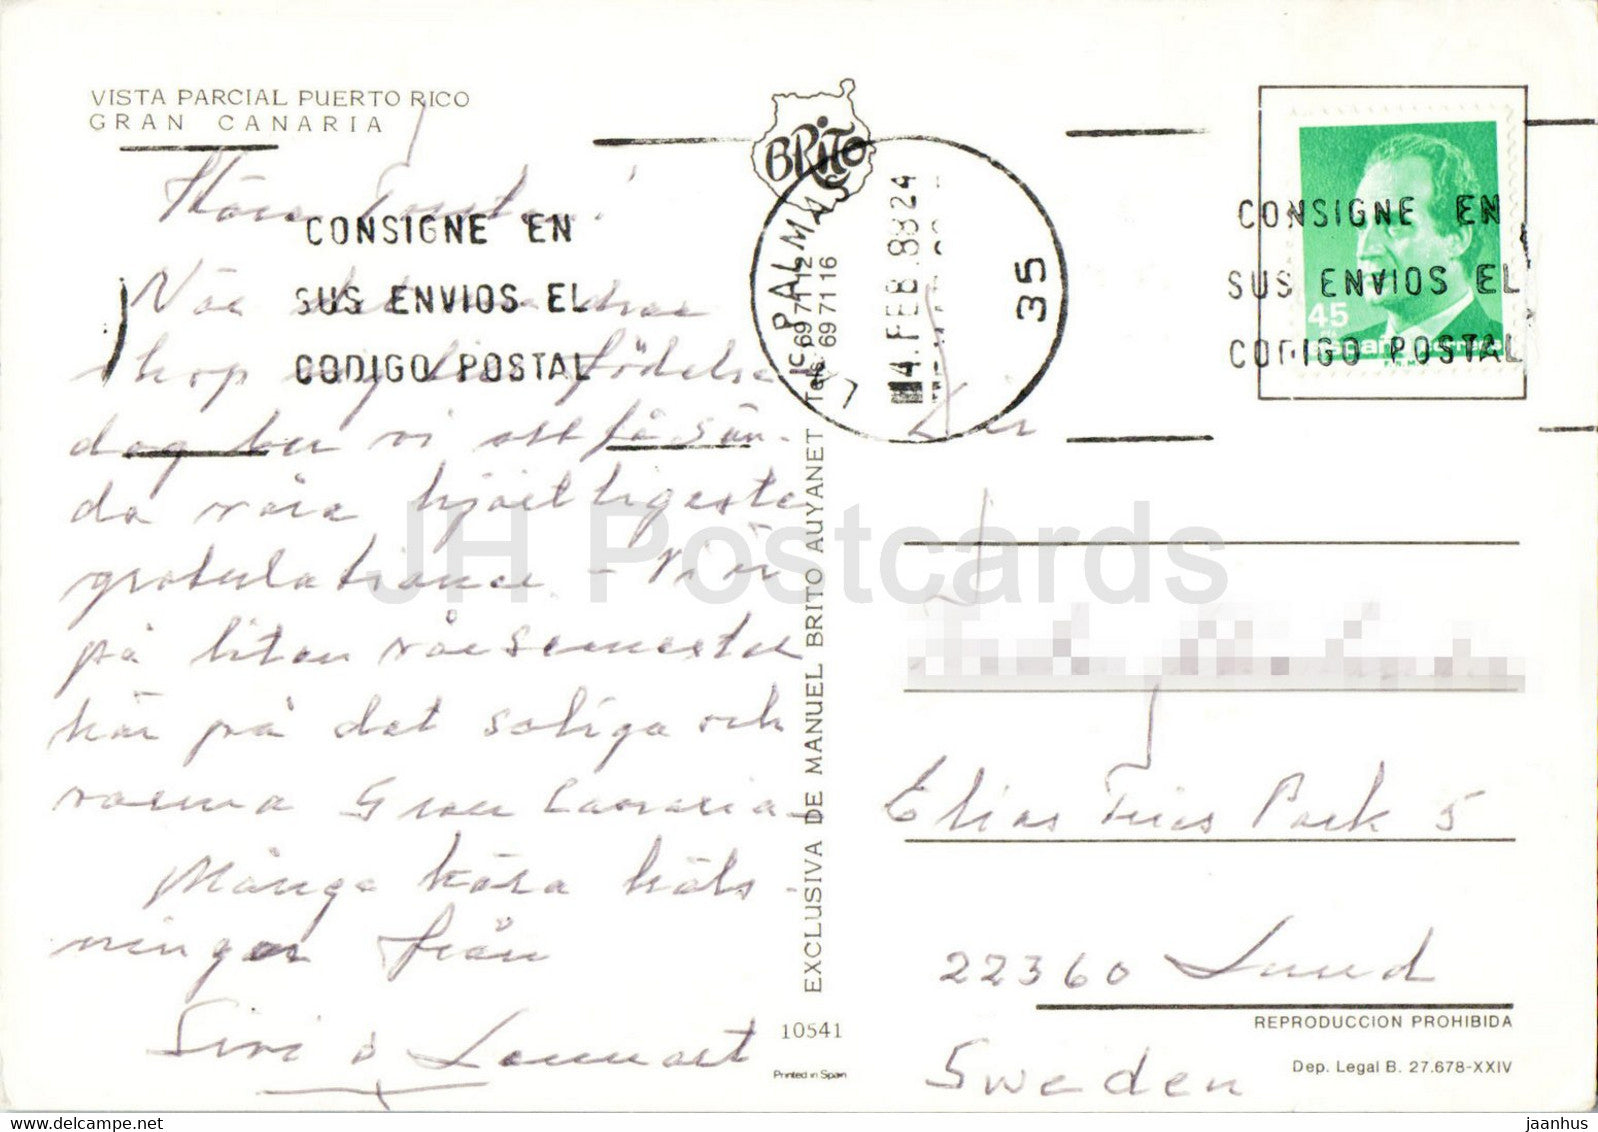 VISTA PARCIAL PUERTO RICO
GRAN CANARIA
BRITO
CONSIGNE EN
SUS ENVIOS EL
CODIGO POSTAL
PALMAS
4.FEB.88 24
35
CONSIGNE EN
SUS ENVIOS EL
CODIGO POSTAL
45
España
Kära
När
skap födelse
dag ber vi att få sän-
da våra hjärtligaste
gratulationer - Vi är
på liten vårsemester
här på det soliga och
varma Gran Canaria
Många kära häls-
ningar från
Siri & Lennart
EXCLUSIVA DE MANUEL BRITO AUYANET Tels. 69 71 12
69 71 16
10541
Printed in Spain
Elias Fries Park 5
22360 Lund
Sweden
REPRODUCCION PROHIBIDA
Dep. Legal B. 27.678-XXIV
JH Postcards
www.delcampe.net
jaanhus